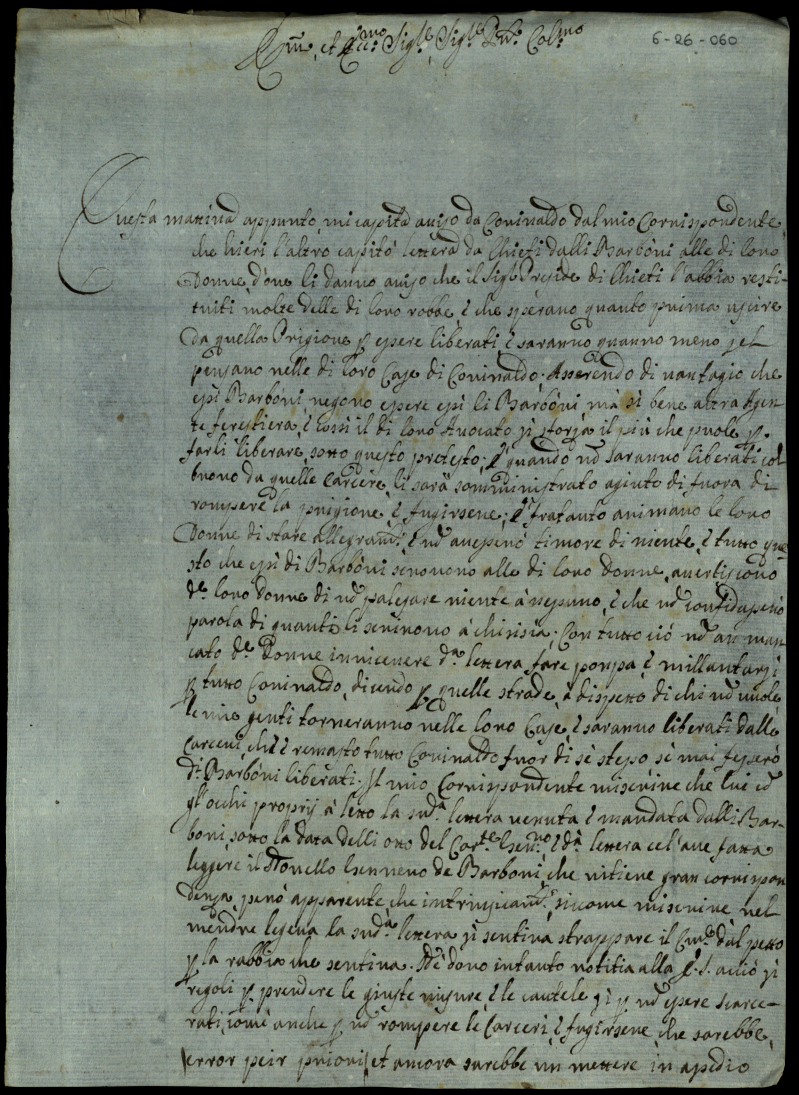 6-26-060
Ill.mo et Ecc.mo Sig.re Sig.re P.ne Col.mo
Questa mattina appunto, mi capita auiso da Coninaldo dal mio Cornispondente
che hieri l'altro capitò lettera da Chieti dalli Barboni alle di loro
Donne, d'oue li danno auiso che il Sig.r Preside di Chieti l'abbia resti-
tuiti molte delle di loro robbe, è che sperano quanto prima uscire
da quella Prigione p essere liberati, è saranno quanno meno sel
pensano nelle di loro Case di Coninaldo; Asserendo di uantagio che
essi Barboni negono essere essi li Barboni, ma si bene altra Agen-
te ferestiera, è cossi il di loro Auocato si sforza il più che puole p
farli liberare, sotto questo pretesto; è quando nō saranno liberati col
buono da quelle Carcere, li sarà somministrato agiuto di fuora di
rompere la prigione, è fugirsene; è tratanto animano le loro
Donne di stare allegram.te, è nō auessero timore di niente, è tutto que-
sto che essi di Barboni scriuono alle di loro Donne, auertiscono
d.e loro donne di nō palesare niente à nessuno, è che nō confidassero
parola di quanti li scriuono à chi sisia; Con tutto ciò nō an man-
cato d.e Donne inriceuere d.a lettera fare pompa, è millantarsi
p tutto Coninaldo, dicendo p quelle strade, à dispetto di chi nō uuole,
le mie genti torneranno nelle loro Case, è saranno liberati dalle
Carceri, che è remasto tutto Coninaldo fuor di sè stesso se mai fussero
d.i Barboni liberati. Il mio Cornispondente miscriue che lui cō
gl'occhi proprij à letto la sud.a lettera uenuta è mandata dalli Bar-
boni, sotto la data delli otto del Cor.te è d.a lettera cel'aue fatta
leggere il de Barboni, che ritiene gran cornispon
denza, però apparente che intrinsicam.te, sicome miscriue nel
mendre legeua la sud.a lettera si sentiua strappare il Cuore dal petto
p la rabbia che sentiua. Ne dono intanto notitia alla acciò si
regoli p prendere le giuste misure, è le cautele sì p nō essere scarce-
rati, come anche p nō rompere le Carceri è fugirsene, che sarebbe
error peir priori, et ancora sarebbe un mettere in apedio